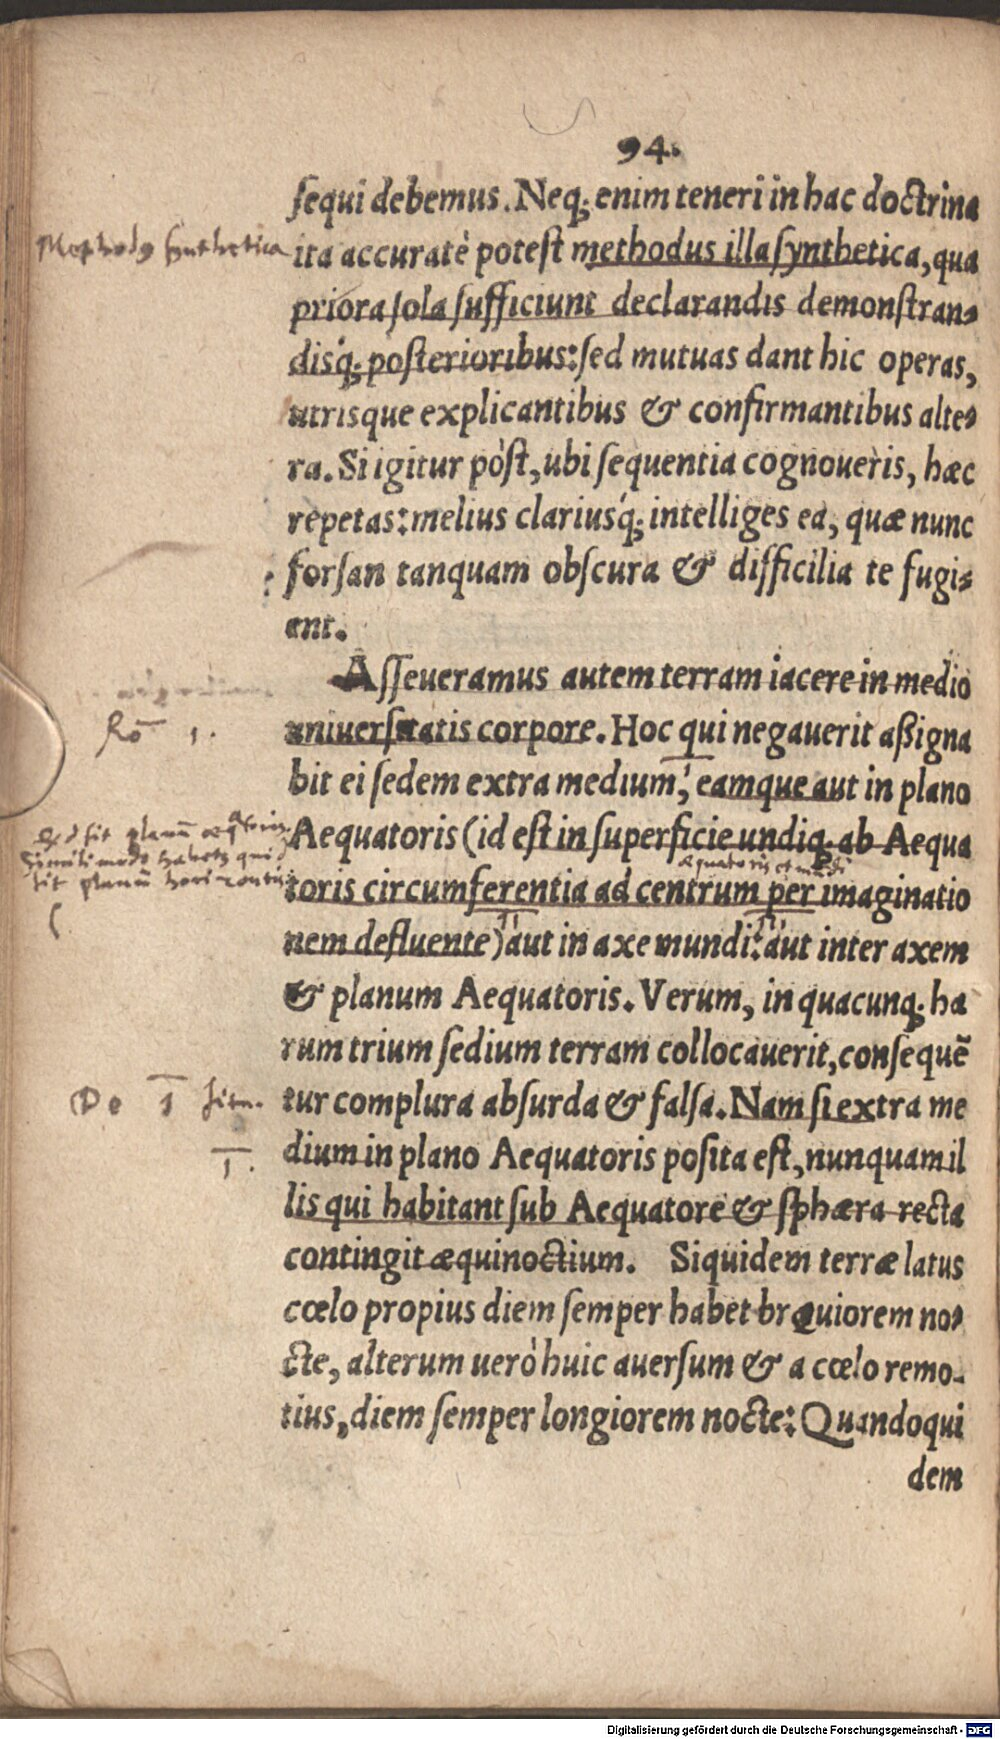 94.
sequi debemus. Neq; enim teneri in hac doctrina
Methodus synthetica
ita accuratè potest methodus illa synthetica, qua
priora sola sufficiunt declarandis demonstran⸗
disq́; posterioribus: sed mutuas dant hic operas,
utrisque explicantibus & confirmantibus alte⸗
ra. Si igitur pòst, ubi sequentia cognoueris, hæc
repetas: melius clariusq́; intelliges ea, quæ nunc
forsan tanquam obscura & difficilia te fugi⸗
ent.
Asseueramus autem terram iacere in medio
Rõ 1.
uniuersitatis corpore. Hoc qui negauerit aßigna
bit ei sedem extra medium, eamque aut in plano
Aequatoris (id est in superficie undiq; ab Aequa
toris circumferentia ad centrum per imaginatio
nem defluente) aut in axe mundi: aut inter axem
& planum Aequatoris. Verum, in quacunq; ha
rum trium sedium terram collocauerit, consequẽ
De 1 situ.
tur complura absurda & falsa. Nam si extra me
1.
dium in plano Aequatoris posita est, nunquam il
lis qui habitant sub Aequatore & sphæra recta
contingit æquinoctium. Siquidem terræ latus
cœlo propius diem semper habet breuiorem no⸗
cte, alterum uerò huic auersum & a cœlo remo-
tius, diem semper longiorem nocte: Quandoqui
dem
Digitalisierung gefördert durch die Deutsche Forschungsgemeinschaft - DFG